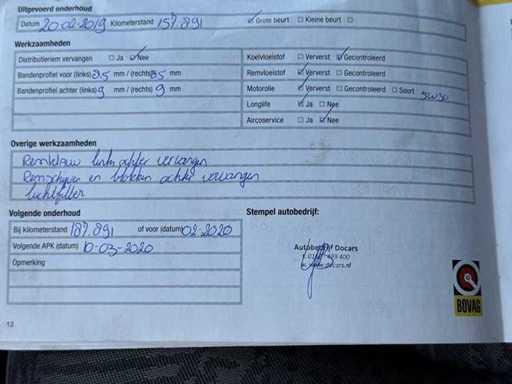 Uitgevoerd onderhoud
Datum 20-02-2019 Kilometerstand 157.891 ☑ Grote beurt ☐ Kleine beurt ☐
Werkzaamheden
Distributieriem vervangen ☐ Ja ☑ Nee
Bandenprofiel voor (links) 3,5 mm / (rechts) 3,5 mm
Bandenprofiel achter (links) 9 mm / (rechts) 9 mm
Koelvloeistof ☐ Ververst ☑ Gecontroleerd
Remvloeistof ☑ Ververst ☐ Gecontroleerd
Motorolie ☑ Ververst ☐ Gecontroleerd ☐ Soort 5W30
Longlife ☑ Ja ☐ Nee
Aircoservice ☐ Ja ☑ Nee
Overige werkzaamheden
Remklauw links achter vervangen
Remschijven en blokken achter vervangen
luchtfilter
Volgende onderhoud
Bij kilometerstand 187.891 of voor (datum) 02-2020
Volgende APK (datum) 10-03-2020
Opmerking
Stempel autobedrijf:
Autobedrijf Docars
400
docars.nl
BOVAG
12